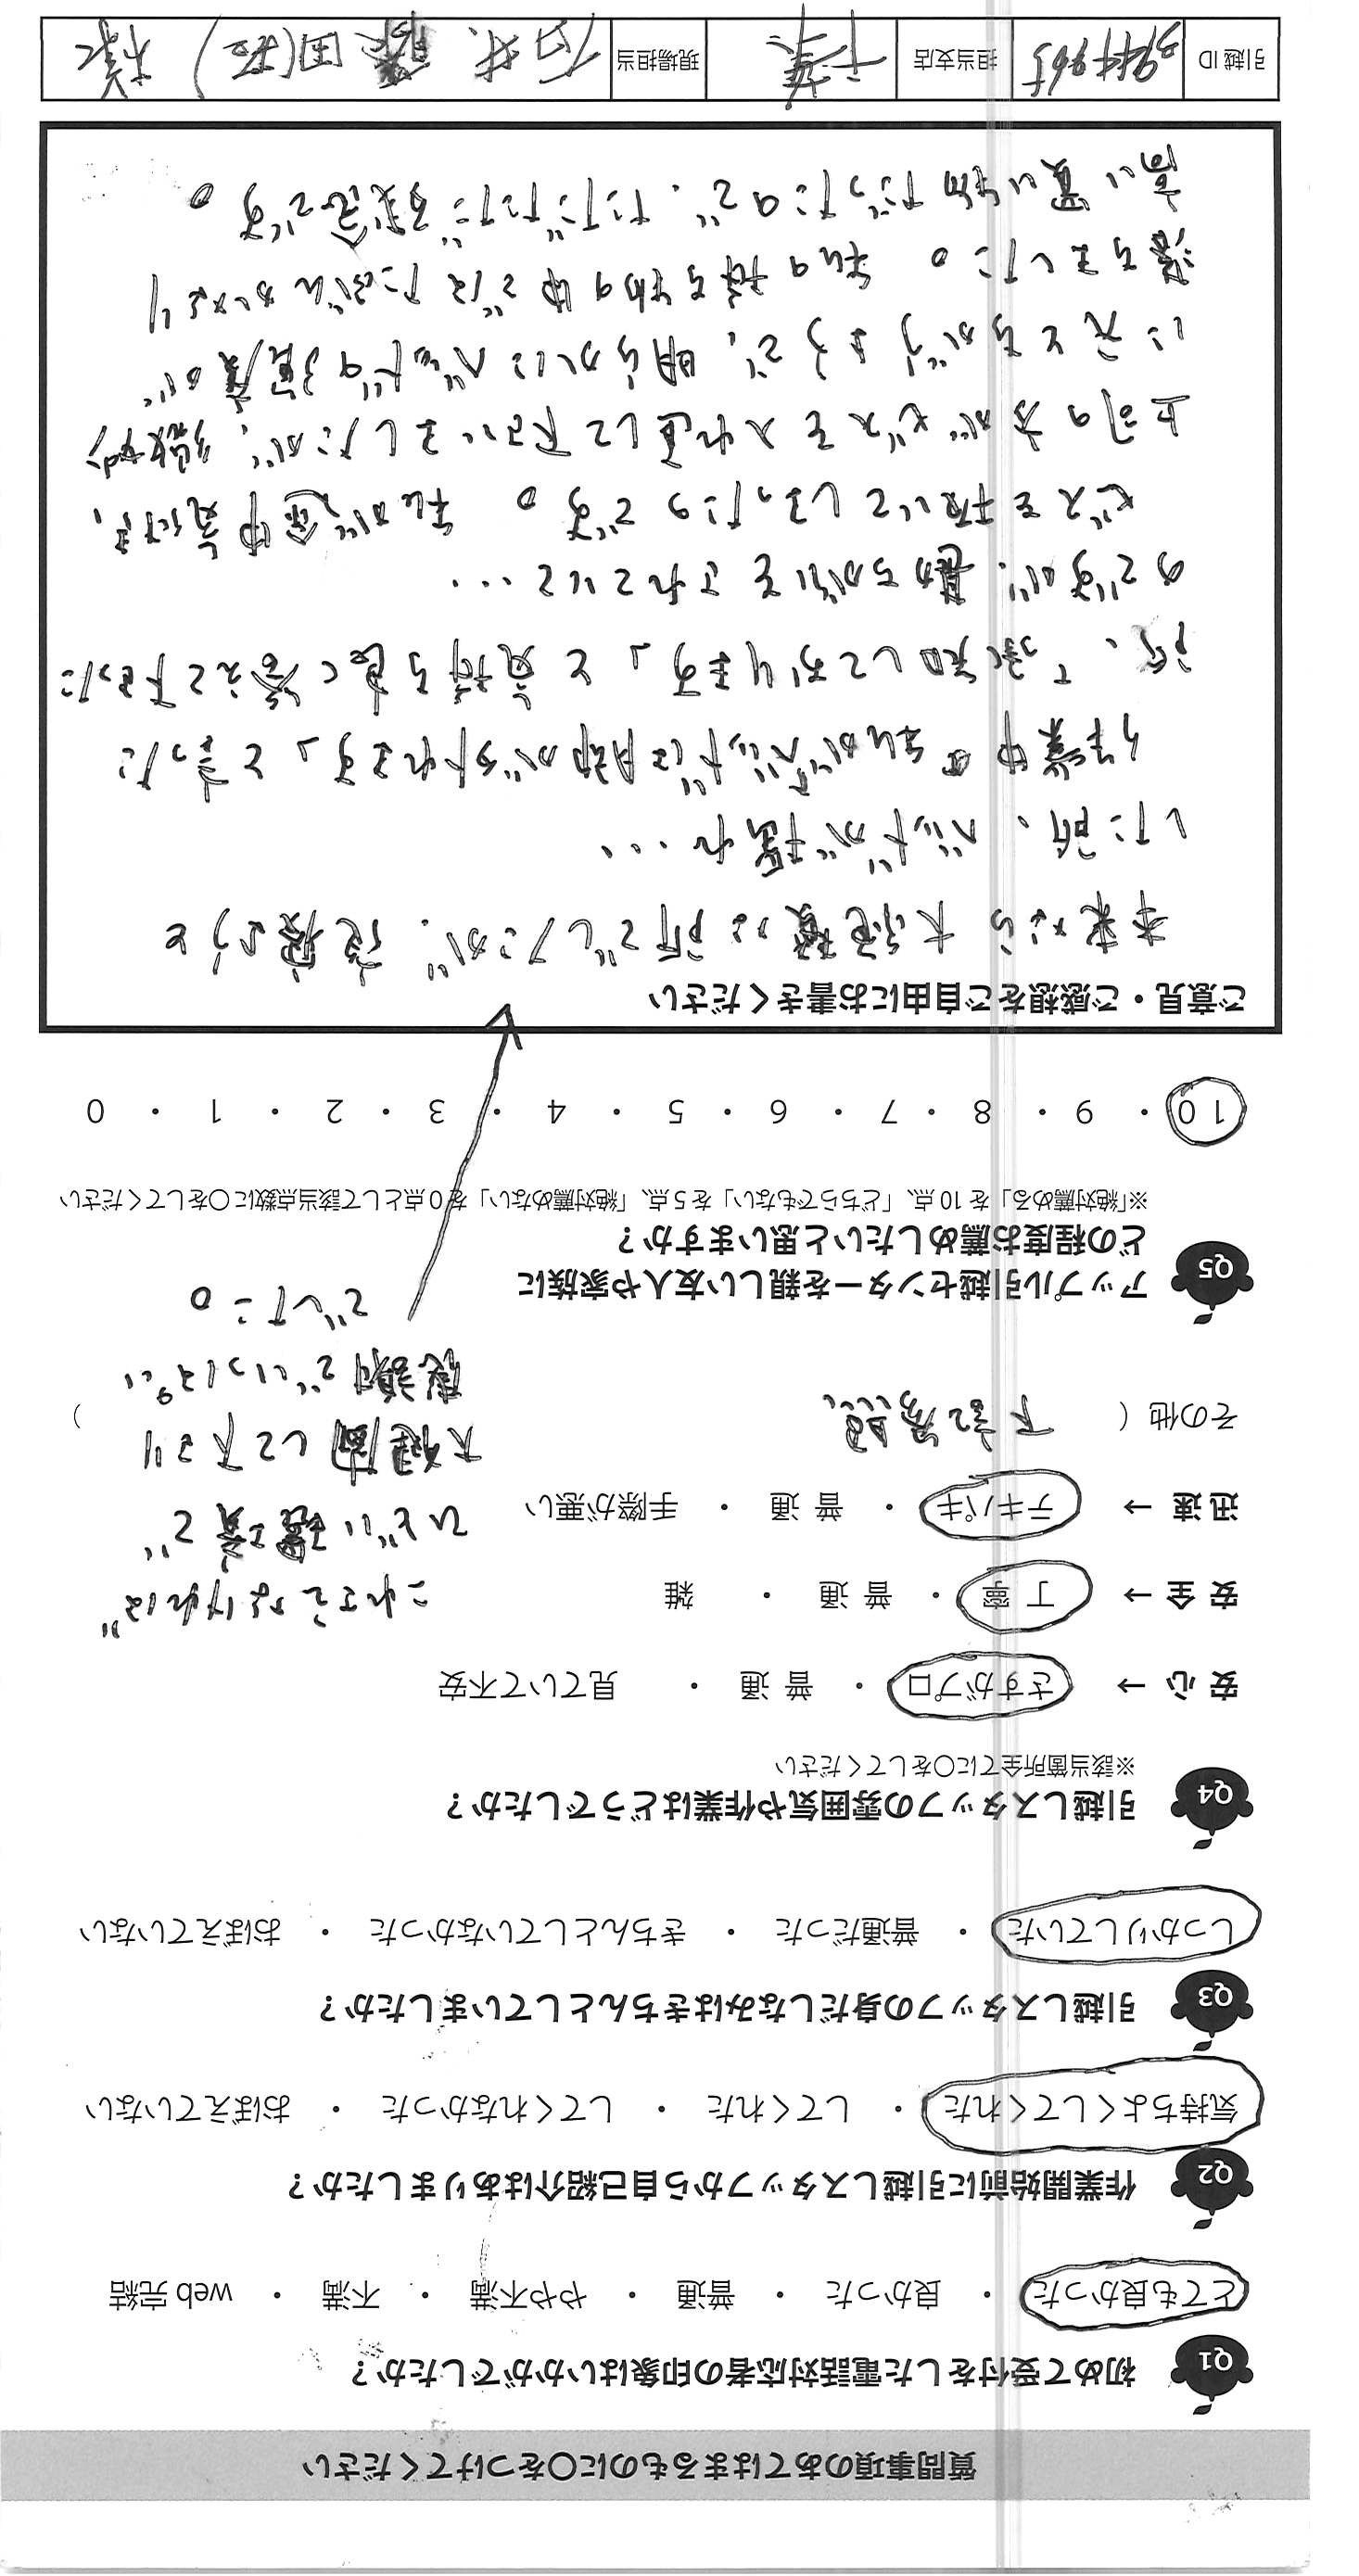 質問事項のあてはまるものに○をつけてください
Q1 初めて受付をした電話対応者の印象はいかがでしたか？
とても良かった ・ 良かった ・ 普通 ・ やや不満 ・ 不満 ・ web 完結
Q2 作業開始前に引越しスタッフから自己紹介はありましたか？
気持ちよくしてくれた ・ してくれた ・ してくれなかった ・ おぼえていない
Q3 引越しスタッフの身だしなみはきちんとしていましたか？
しっかりしていた ・ 普通だった ・ きちんとしていなかった ・ おぼえていない
Q4 引越しスタッフの雰囲気や作業はどうでしたか？
※該当箇所全てに○をしてください
安 心 → さすがプロ ・ 普 通 ・ 見ていて不安
安 全 → 丁 寧 ・ 普 通 ・ 雑
迅 速 → テキパキ ・ 普 通 ・ 手際が悪い
その他（ 下記参照、 ）
これさえなければ
ひどい で
大 して下さり
感謝でいっぱい
でした。
Q5 アップル引越センターを親しい友人や家族に
どの程度お薦めしたいと思いますか？
※「絶対薦める」を 10 点、「どちらでもない」を 5 点、「絶対薦めない」を 0 点として該当点数に○をしてください
10 ・ 9 ・ 8 ・ 7 ・ 6 ・ 5 ・ 4 ・ 3 ・ 2 ・ 1 ・ 0
ご意見・ご感想をご自由にお書きください
本来なら大絶賛な所でしたが、夜寝ようと
した所、ベッドが揺れ…
作業中 私が「ベッドは脚が外れます」と言った
所、「承知しております」と気持ち良く答えて下さった
のですが、勘ちがいをされていて…
ビスを抜いてしまったのです。 私が夜中気付き、
上司の方がビスを入れ直して下さいましたが、微妙
に元とちがうようで、明らかにベッドの強度が
落ちました。 私の持ち物の中ではたぶんかなり
高い買い物だったので、ただただ残念です。
引越 ID 3944965 担当支店 千葉 現場担当 石井、 田(和) 様